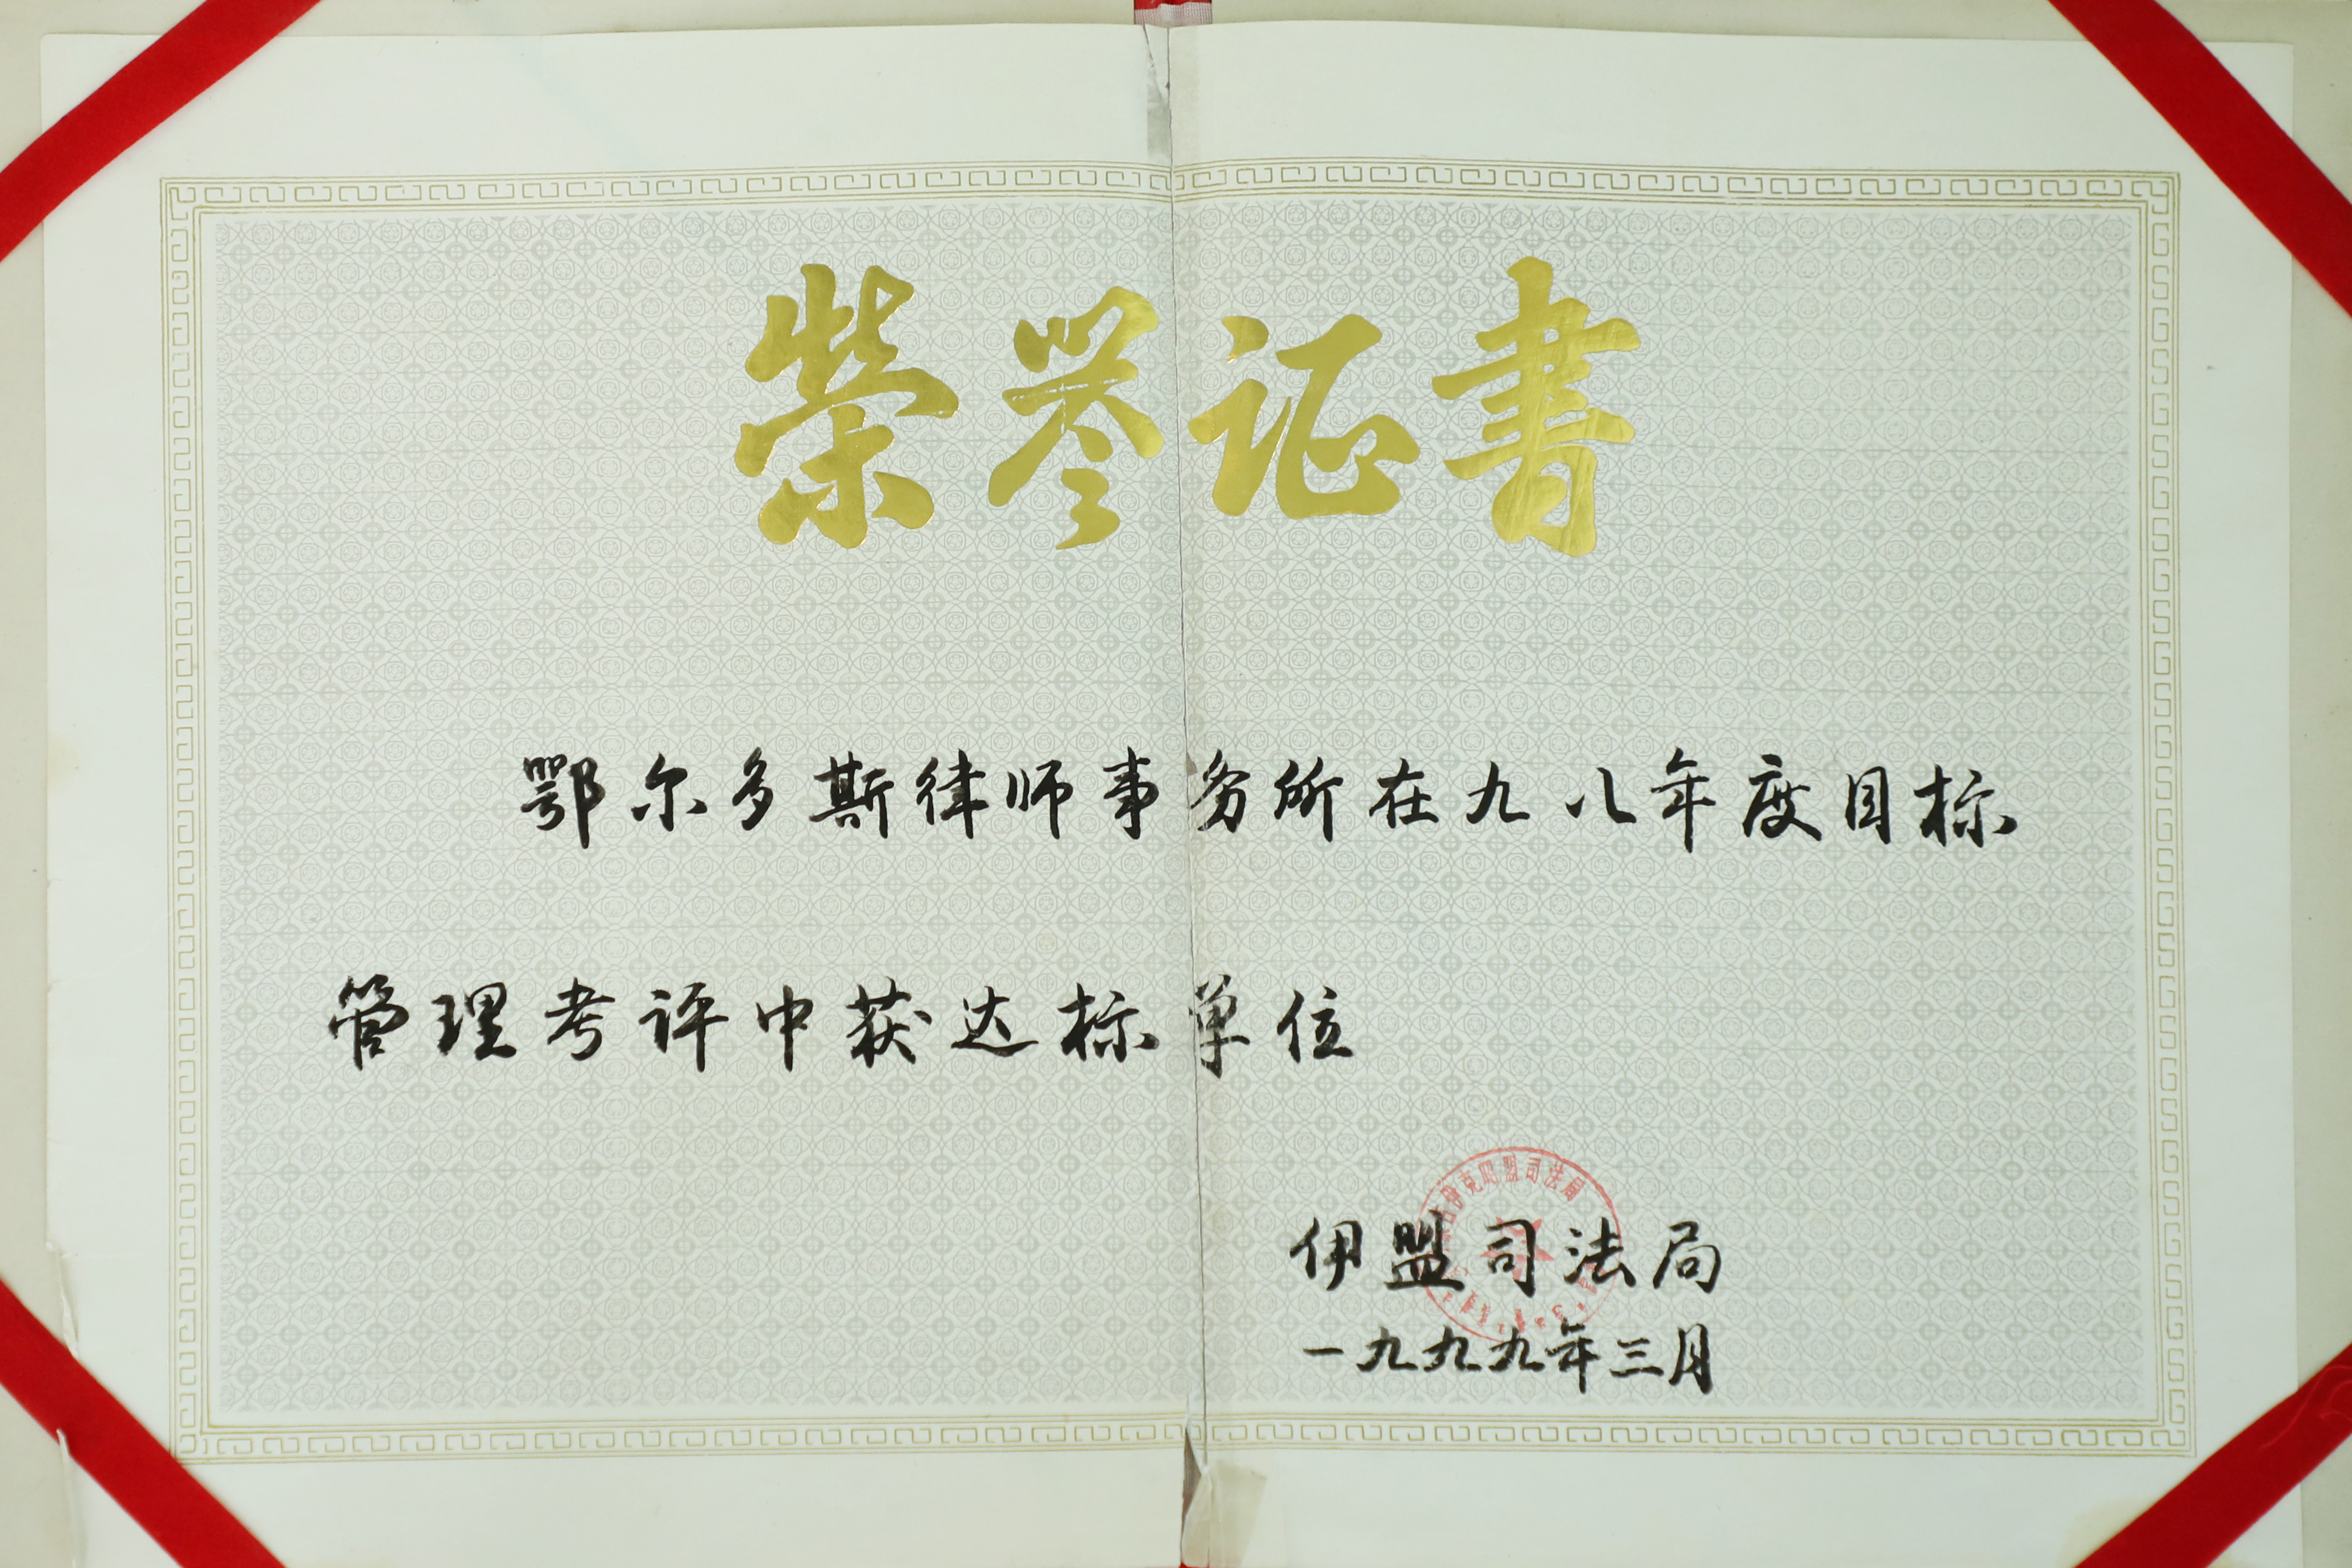 荣誉证书
鄂尔多斯律师事务所在九八年度目标
管理考评中获达标单位
伊克昭盟司法局
伊盟司法局
一九九九年三月